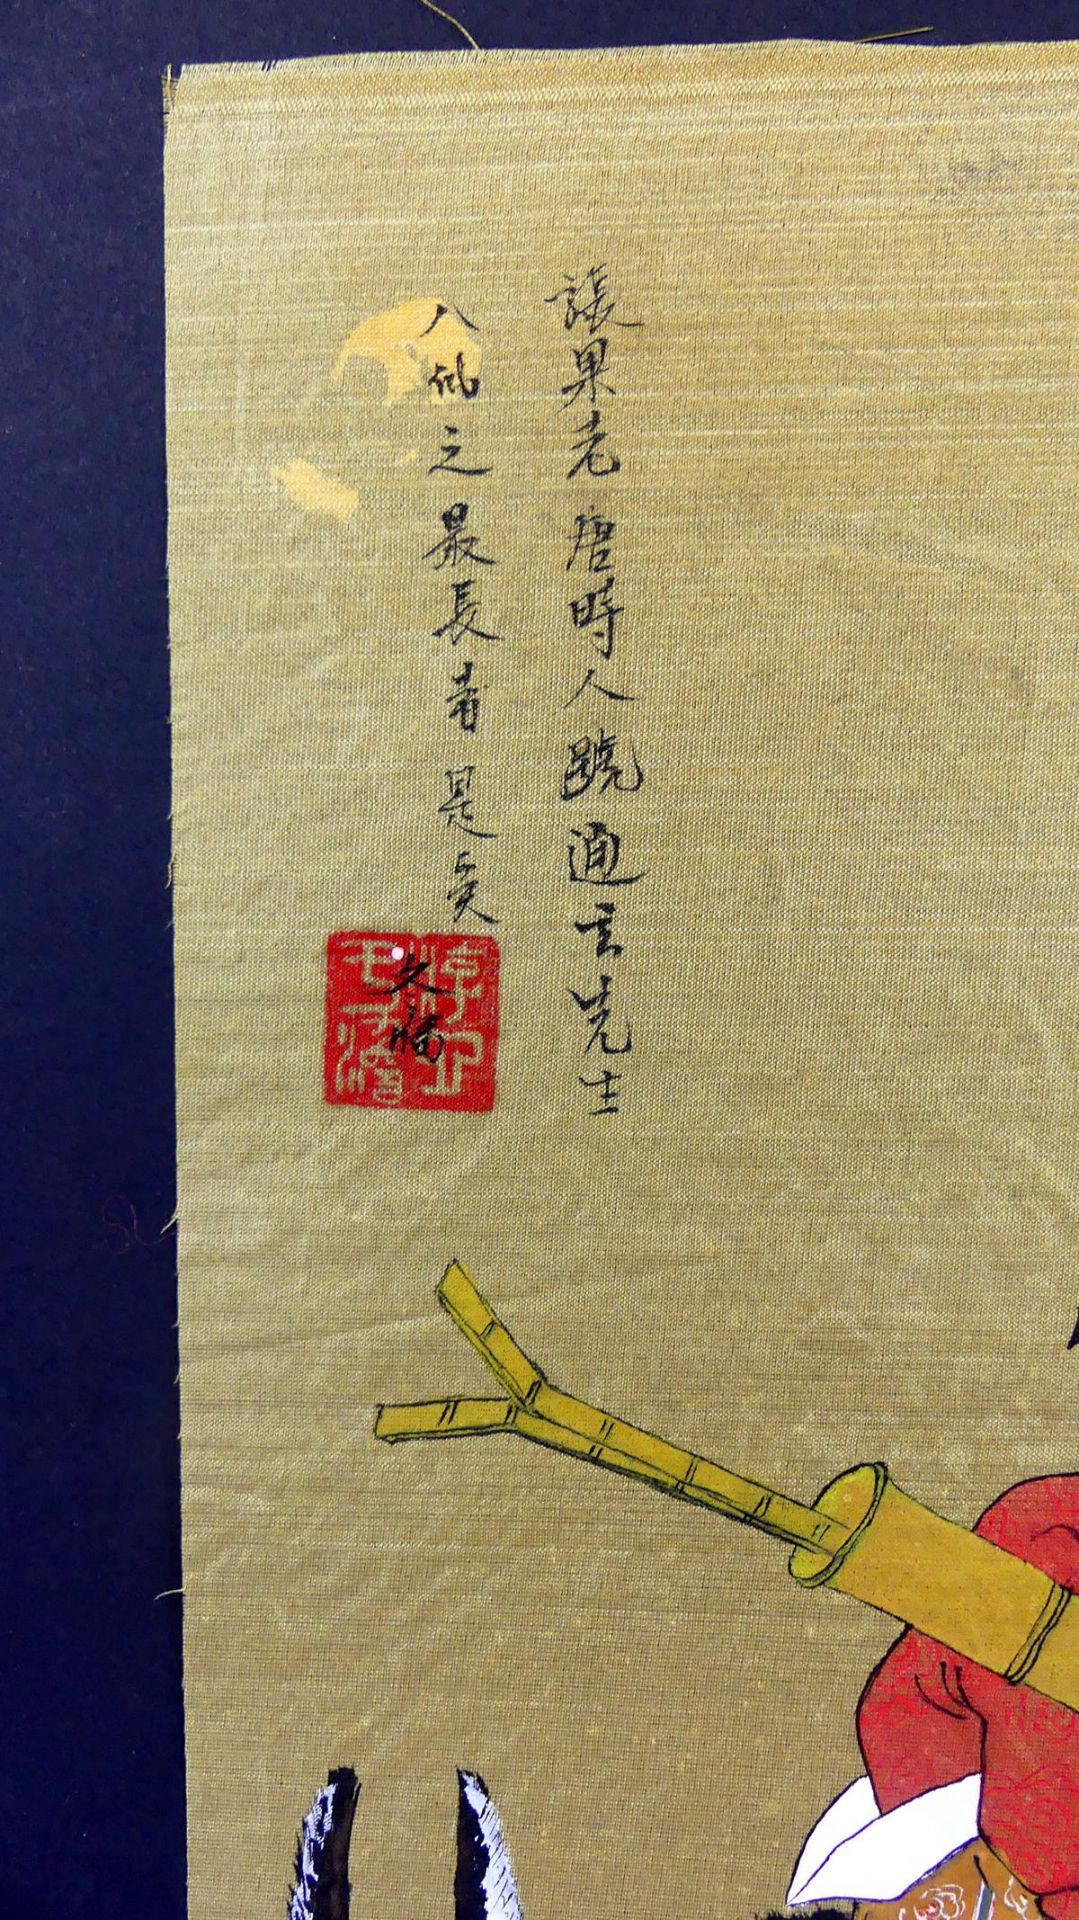 張果老唐時人號通玄先生
八仙之最長者是矣
文